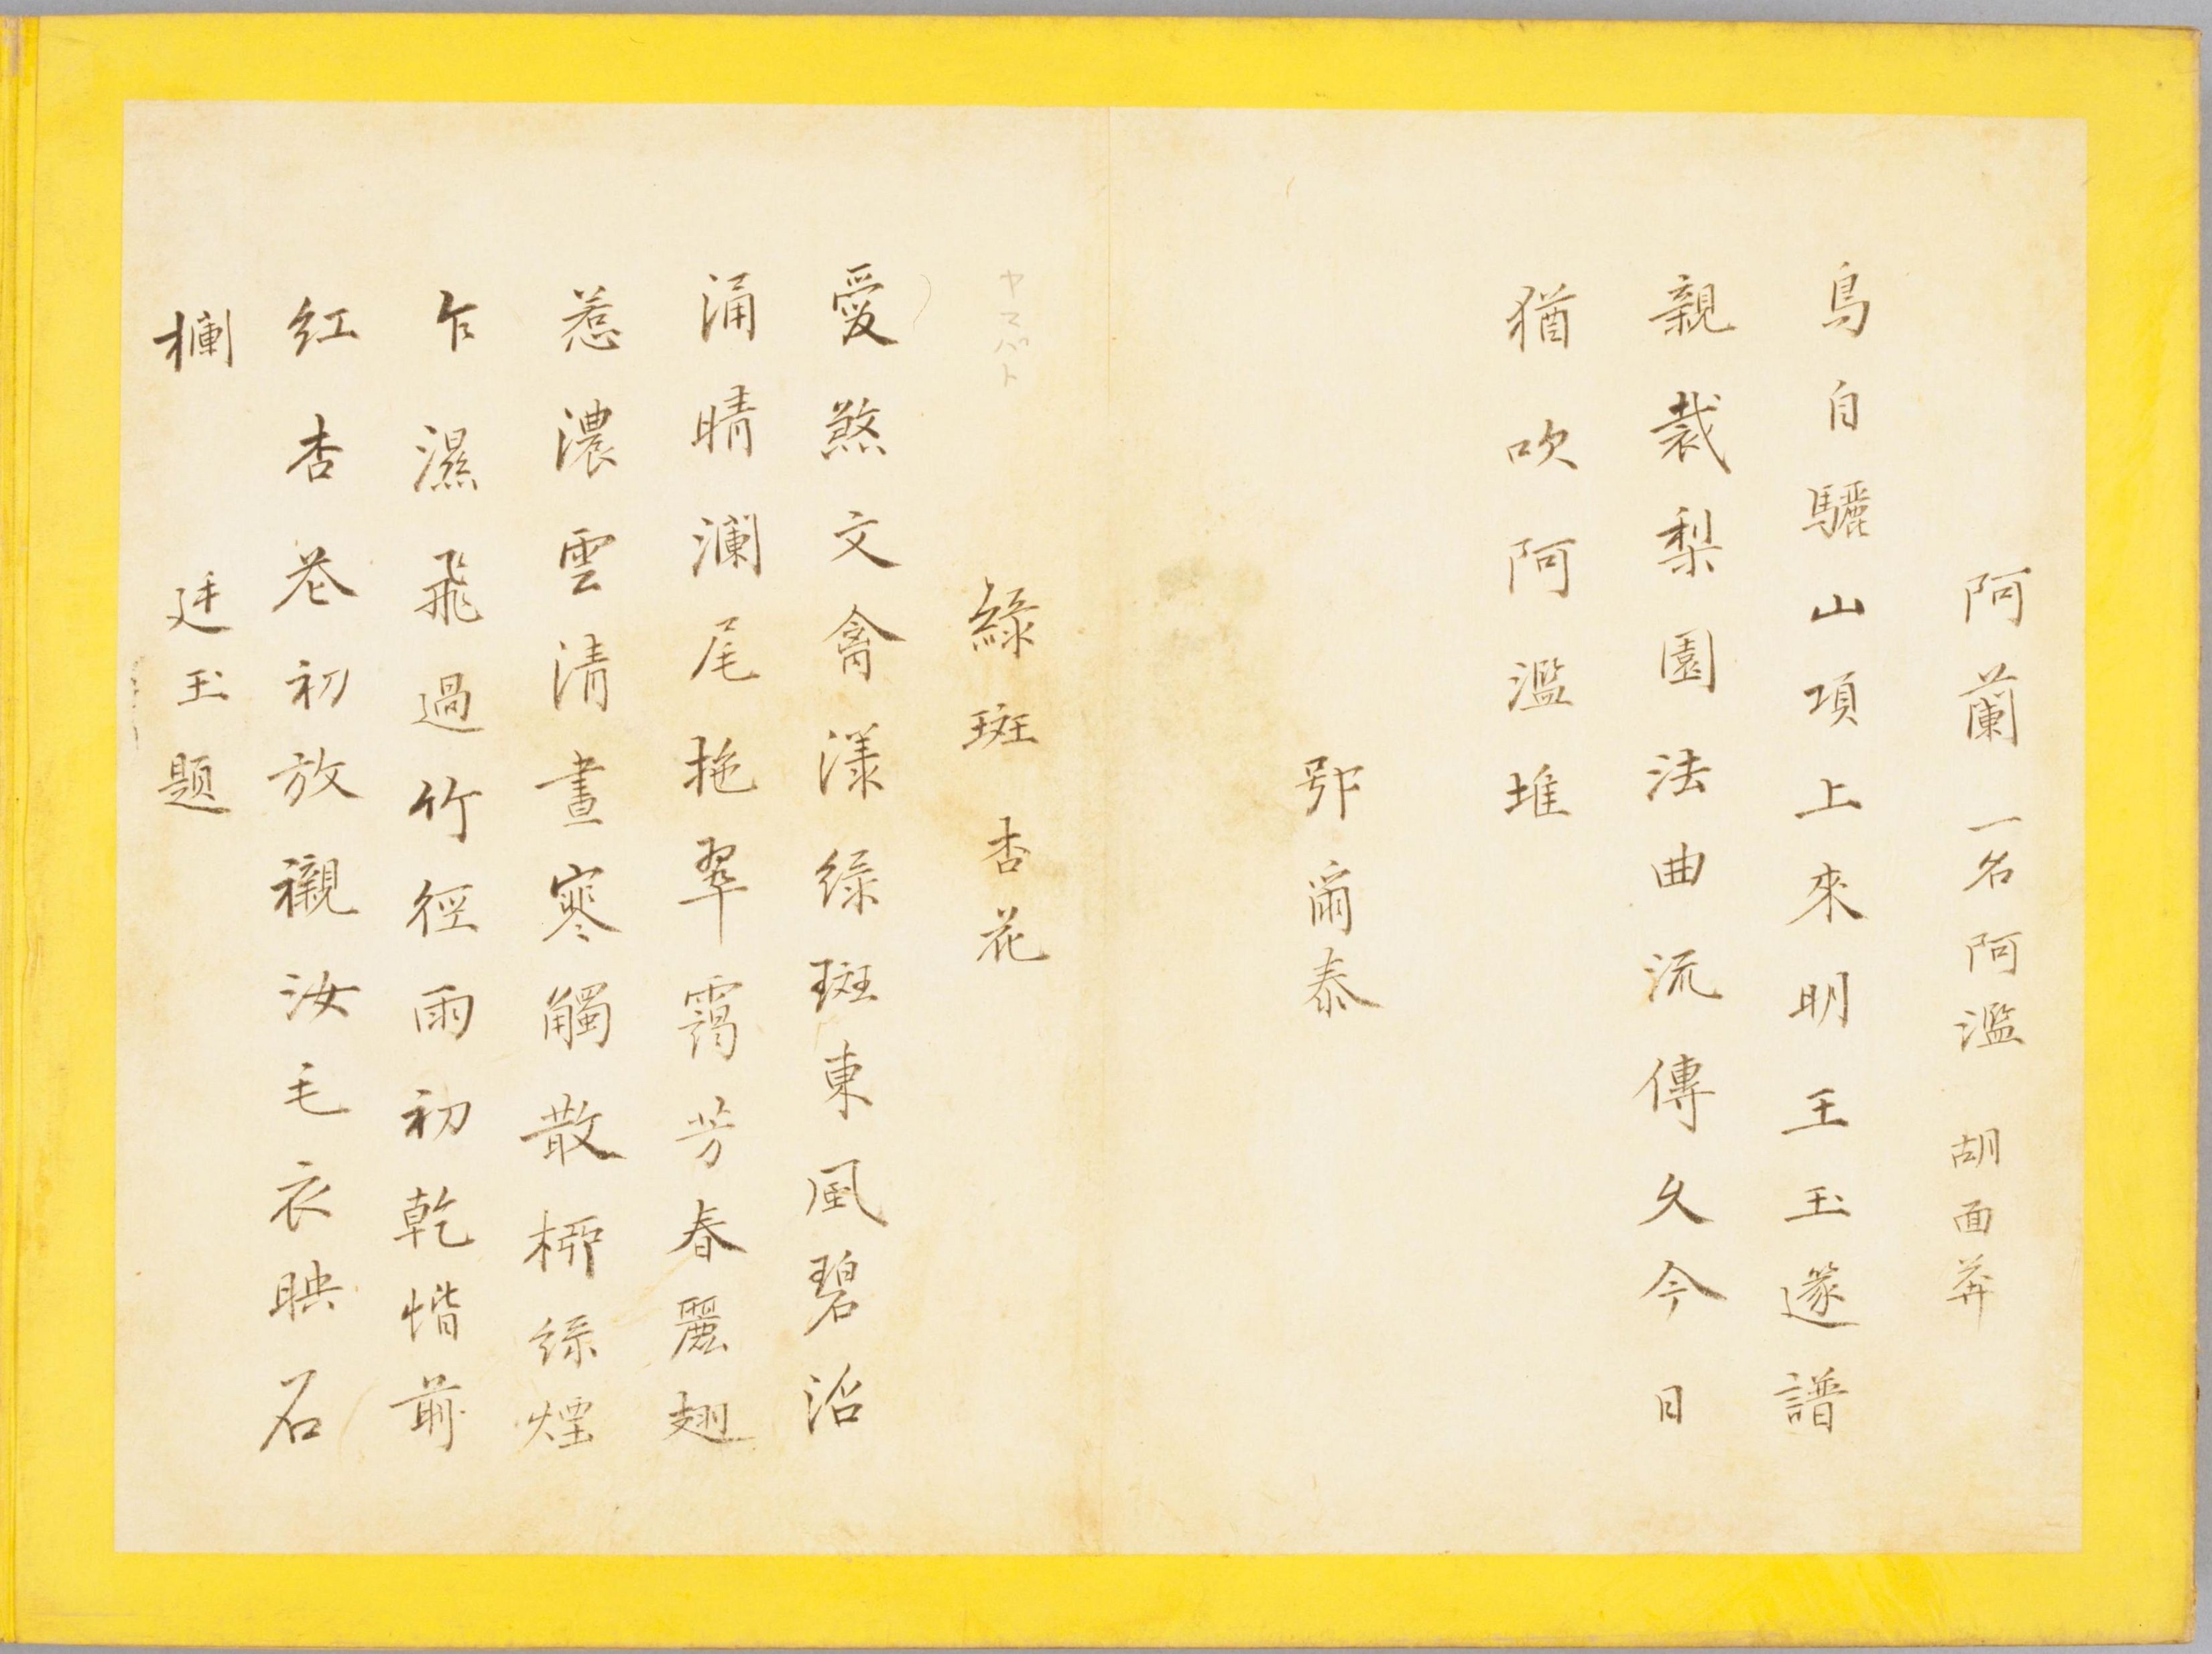 阿蘭 一名阿濫 胡面莽
鳥自驪山項上來明王玉邃譜
親裁梨園法曲流傳久今日
猶吹阿濫堆
鄂爾泰
綠斑 杏花
ヤマバト
愛煞文禽漾綠斑東風碧沼
涌晴瀾尾拖翠靄芳春麗翅
惹濃雲清晝寒觸散桺絲煙
乍濕飛過竹徑雨初乾憯前
紅杏苍初放襯汝毛衣映石
欄 廷玉題